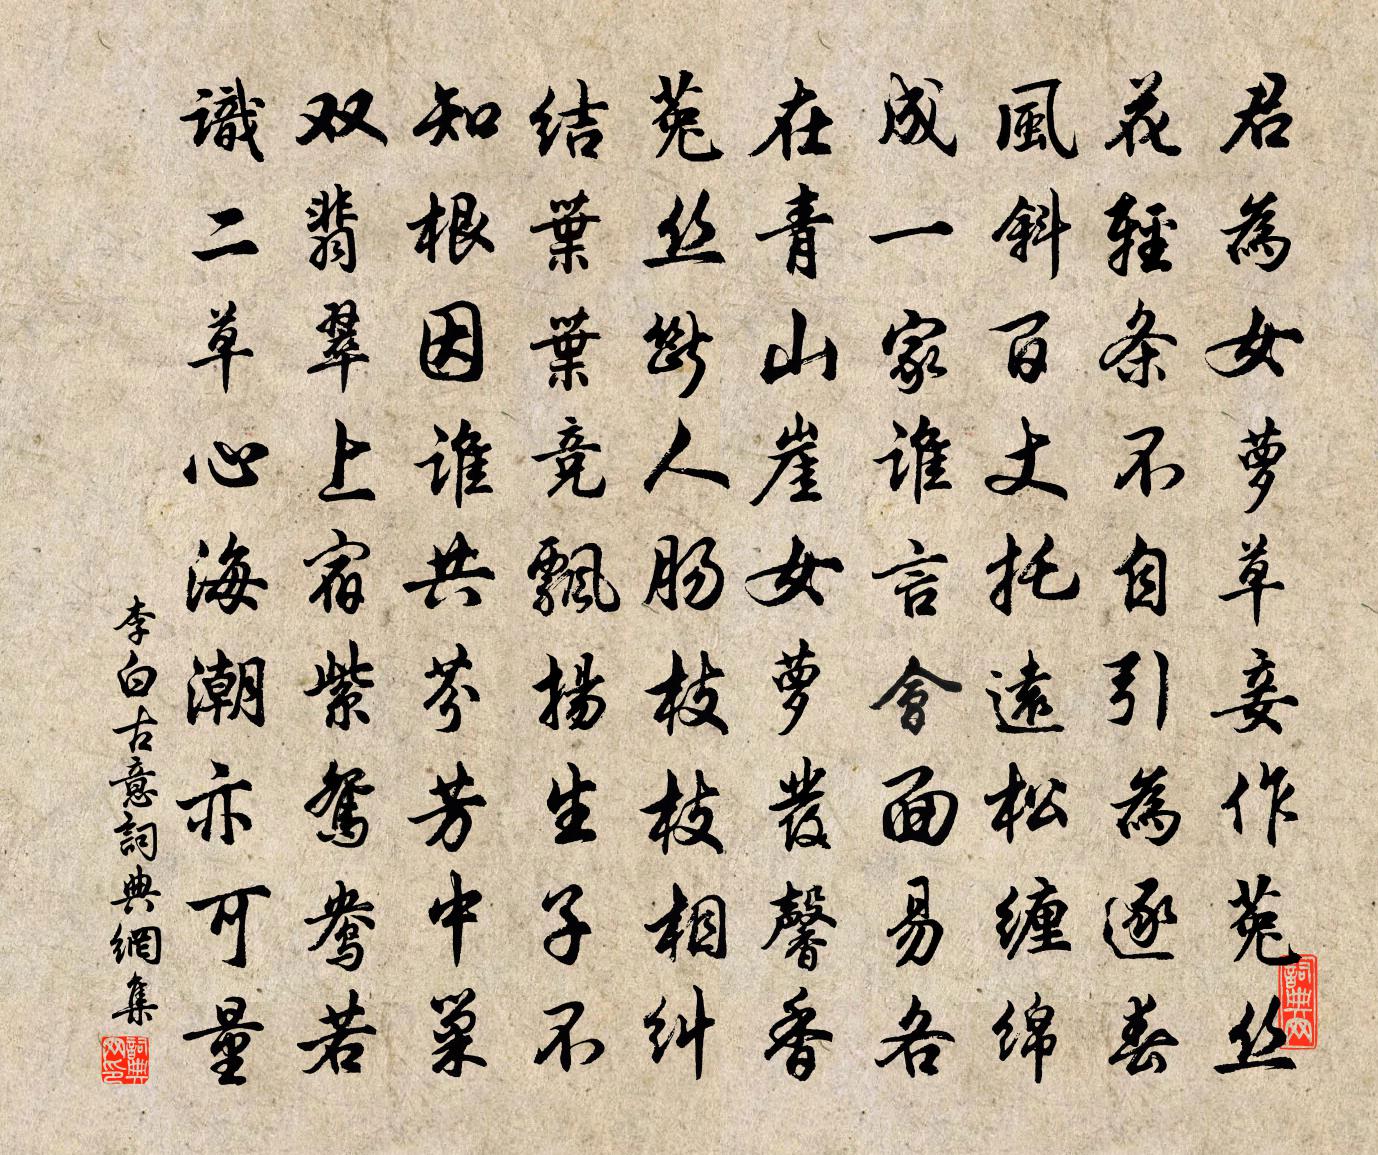 君為女萝草妾作菟丝
花輕条不自引為逐春
風斜百丈托遠松缠绵
成一家谁言會面易各
在青山崖女萝發馨香
菟丝断人肠枝枝相纠
结葉葉竞飘揚生子不
知根因谁共芬芳中巢
双翡翠上宿紫鸳鸯若
識二草心海潮亦可量
李白古意詞典網集
詞典网
詞典网印